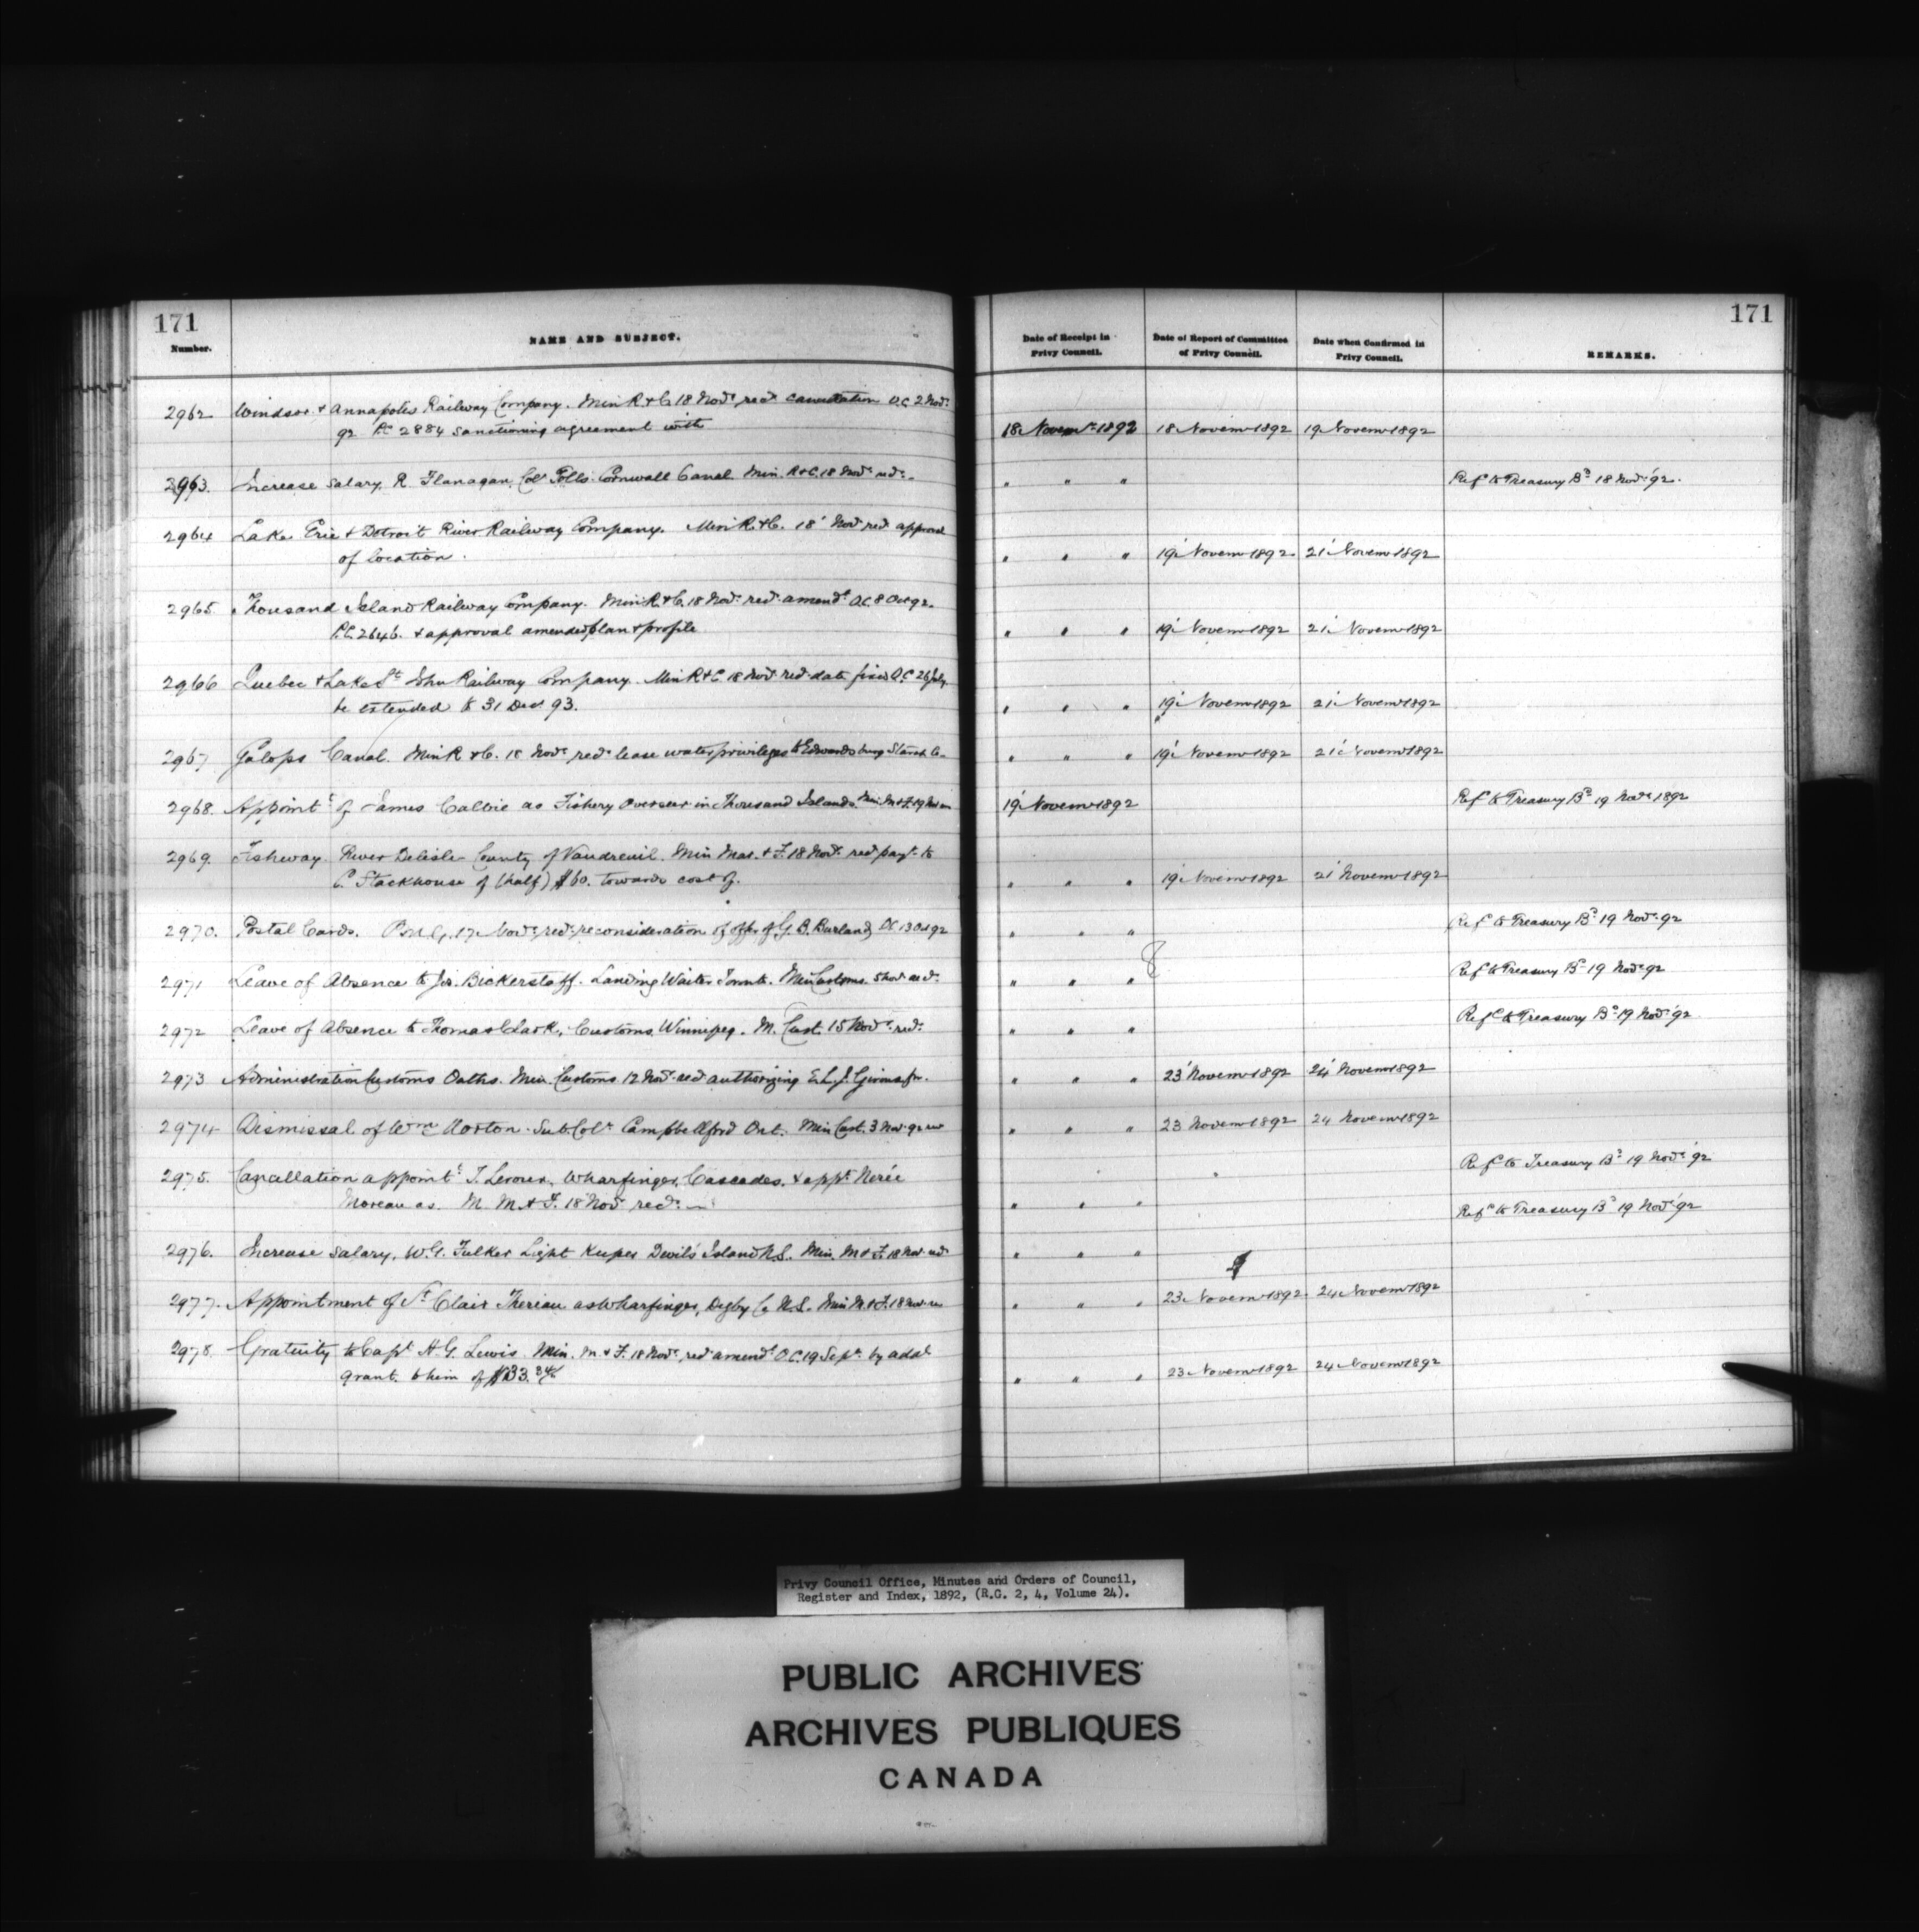 171
171
Number.
NAME AND SUBJECT.
Date of Receipt in Privy Council.
Date of Report of Committee of Privy Council.
Date when Confirmed in Privy Council.
REMARKS.
2962 Windsor & Annapolis Railway Company. Min R & C 18 Novr recd cancellation O.C. 2 Novr
92 P.C. 2884 sanctioning agreement with 18 Novemr 1892 18 Novemr 1892 19 Novemr 1892
2963. Increase Salary, R. Flanagan, Colr Tolls Cornwall Canal Min. R & C. 18 Novr recd. " " " Refd to Treasury Bd 18 Novr '92.
2964 Lake Erie & Detroit River Railway Company. Min R. & C. 18 Novr recd approval
of location. " " " 19 Novemr 1892 21 Novemr 1892
2965. Thousand Island Railway Company. Min R. & C. 18 Novr recd amendt O.C. 8 Oct 92.
P.C. 2646. & approval amended plan & profile " " " 19 Novemr 1892 21 Novemr 1892
2966 Quebec & Lake St John Railway Company. Min R & C. 18 Novr recd date fixed O.C. 26 July
be extended to 31 Decr 93. " " " 19 Novemr 1892 21 Novemr 1892
2967 Galops Canal. Min R & C. 18 Novr recd lease water privileges to Edwardsburg Starch Co. " " " 19 Novemr 1892 21 Novemr 1892
2968. Appointt of James Calbie as Fishery Overseer in Thousand Islands. Min. M & F. 19 Nov 19 Novemr 1892 Refd to Treasury Bd 19 Novr 1892
2969. Fishway River Delisle County of Vaudreuil. Min Mar. & F. 18 Novr recd payt to
C. Stackhouse of (half) $60. towards cost of. " " " 19 Novemr 1892 21 Novemr 1892
2970. Postal Cards. P.M.G. 17 Novr recd reconsideration of offer of G. B. Burland, OC 13 Oct 92 " " " Refd to Treasury Bd 19 Novr 92
2971 Leave of Absence to Js. Bickerstaff. Landing Waiter Toronto. Min Customs. 5 Nov recd. " " " Refd to Treasury Bd 19 Novr 92
2972 Leave of Absence to Thomas Clark, Customs Winnipeg. M. Cust. 15 Novr recd. " " " Refd to Treasury Bd 19 Novr '92
2973 Administration Customs Oaths. Min. Customs 12 Nov recd authorizing E. L. J. Givins for. " " " 23 Novemr 1892 24 Novemr 1892
2974 Dismissal of Wm Norton. Sub Colr Campbellford Ont. Min Cust. 3 Nov 92 rec " " " 23 Novemr 1892 24 Novemr 1892
2975. Cancellation appointt J. Leroux, Wharfinger, Cascades, & appt Nerée Refd to Treasury Bd 19 Novr '92
Moreau as. M. M. & F. 18 Novr recd. " " " Refd to Treasury Bd 19 Novr '92
2976. Increase Salary, W. G. Fulker Light Keeper Devils Island N.S. Min. M & F. 18 Nov recd " " "
2977. Appointment of St Clair Theriau as Wharfinger, Digby Co N.S. Min M & F. 18 Nov rec " " " 23 Novemr 1892 24 Novemr 1892
2978. Gratuity to Capt H. G. Lewis. Min. M. & F. 18 Novr recd amendt O.C. 19 Sept by adal
grant to him of " " " 23 Novemr 1892 24 Novemr 1892
Privy Council Office, Minutes and Orders of Council,
Register and Index, 1892, (R.G. 2, 4, Volume 24).
PUBLIC ARCHIVES
ARCHIVES PUBLIQUES
CANADA